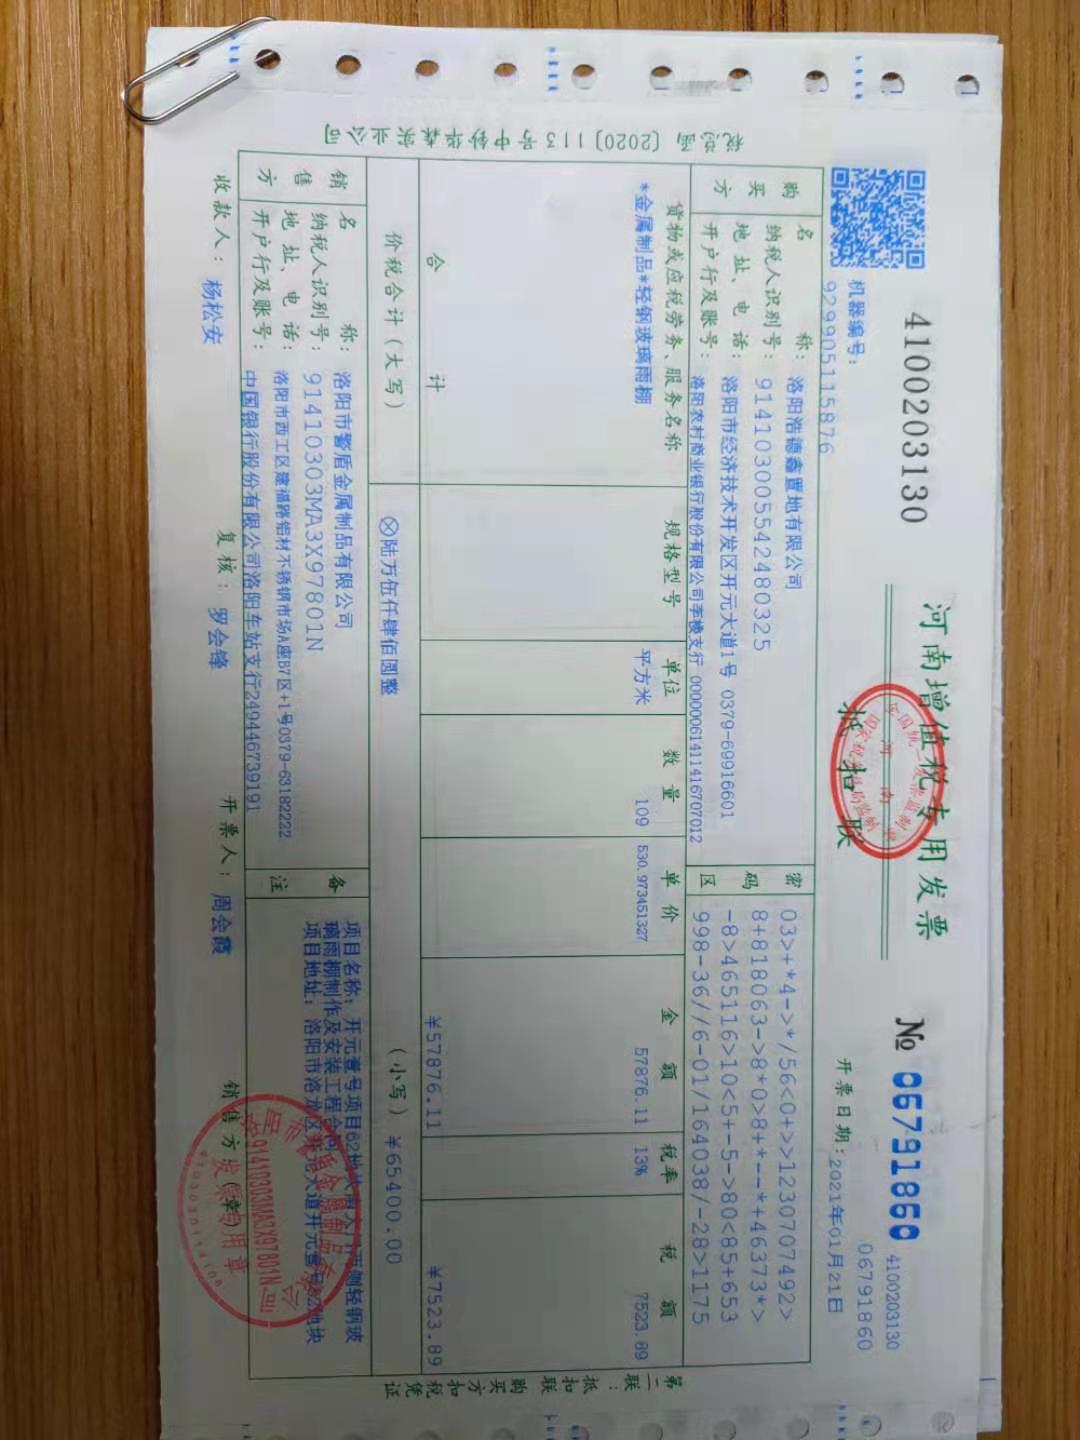 4100203130
河南增值税专用发票
抵扣联
№ 06791860
4100203130
06791860
机器编号:
929905115876
开票日期:2021年01月21日
税总函〔2020〕113号中钞华森实业公司
购买方
名称:洛阳浩德鑫置地有限公司
纳税人识别号:914103005542480325
地址、电话:洛阳市经济技术开发区开元大道1号 0379-69916601
开户行及账号:洛阳农村商业银行股份有限公司李楼支行 00000061411416707012
密码区
03>+*4->*/56<0+>>1230707492>
8+818063->8*0>8+*--*+46373*>
-8>465116>10<5+-5->80<85+653
998-36//6-01/164038/-28>1175
货物或应税劳务、服务名称 规格型号 单位 数量 单价 金额 税率 税额
*金属制品*轻钢玻璃雨棚 平方米 109 530.973451327 57876.11 13% 7523.89
合计 ¥57876.11 ¥7523.89
价税合计(大写) ⊗陆万伍仟肆佰圆整 (小写) ¥65400.00
销售方
名称:洛阳市警盾金属制品有限公司
纳税人识别号:91410303MA3X97801N
地址、电话:洛阳市西工区建福路铝材不锈钢市场A座B7区+1号0379-63182222
开户行及账号:中国银行股份有限公司洛阳车站支行249446739191
备注
项目名称:开元壹号项目62地块南入门两侧轻钢玻
璃雨棚制作及安装工程合同
项目地址:洛阳市洛龙区开元大道开元壹号62地块
收款人:杨松安 复核:罗会锋 开票人:周会霞 销售方:(章)
91410303MA3X97801N
发票专用章
4103030114106
第二联:抵扣联 购买方扣税凭证